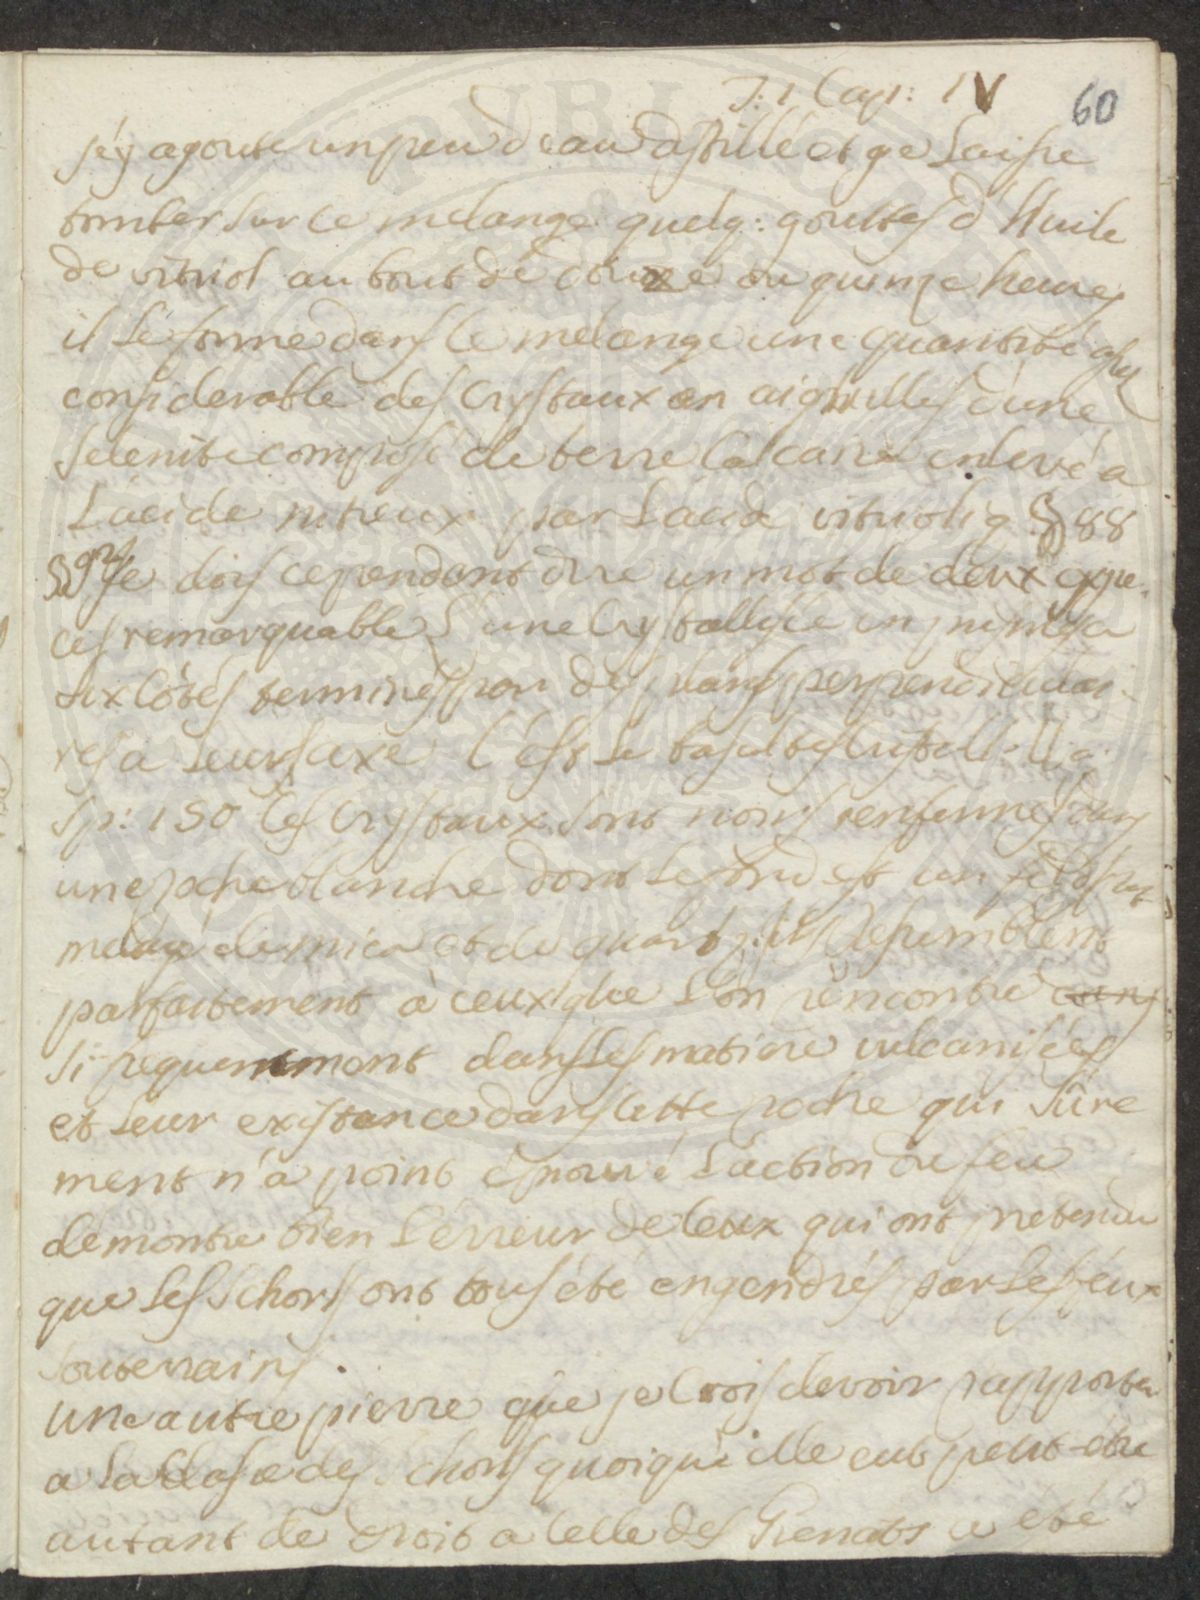 T: 1 Cap: IV 60
j'éy agoute un peu d'eau distillé et ge Laisse
tomber sur ce melange quelq: gouttes d'Huile
de vitriol au bout de douze ou quinze heures
il se forme dans le melange une quantité assez
considerable des Crystaux en aiguilles d'une
selenite composé de terre Calcaire enlevé a
L'acide nitreux par L'acide vitrioliq § 88
§ 92 Je dois cependant dire un mot de deux espe-
ces remarquables L'une Crystallise en prismes a
six Côtés terminés par des plans perpendiculai-
res a Leurs axe C'est Le basaltes Cristall:
sp: 150 Ces Crystaux sont noirs renfermés dans
une roche blanche dont Le fond est un feldspat
melangé de mica et de quartz; ils Ressemblent
parfaitement à ceux que L'on rencontre dans
si frequemment dans les matiere vulcanisées
et Leur existance dans cette roche qui sûre
ment n'a point éprouvé L'action du feu
démontre bien L'érreur de Ceux qui ont pretendu
que Les schorls ont tous été engendrés par Les feux
souterrains.
Une autre pierre que je Crois devoir rapporter
a La Classe des schorls quoiqu'elle eut peut-etre
autant de droit a Celle des Grenats a été